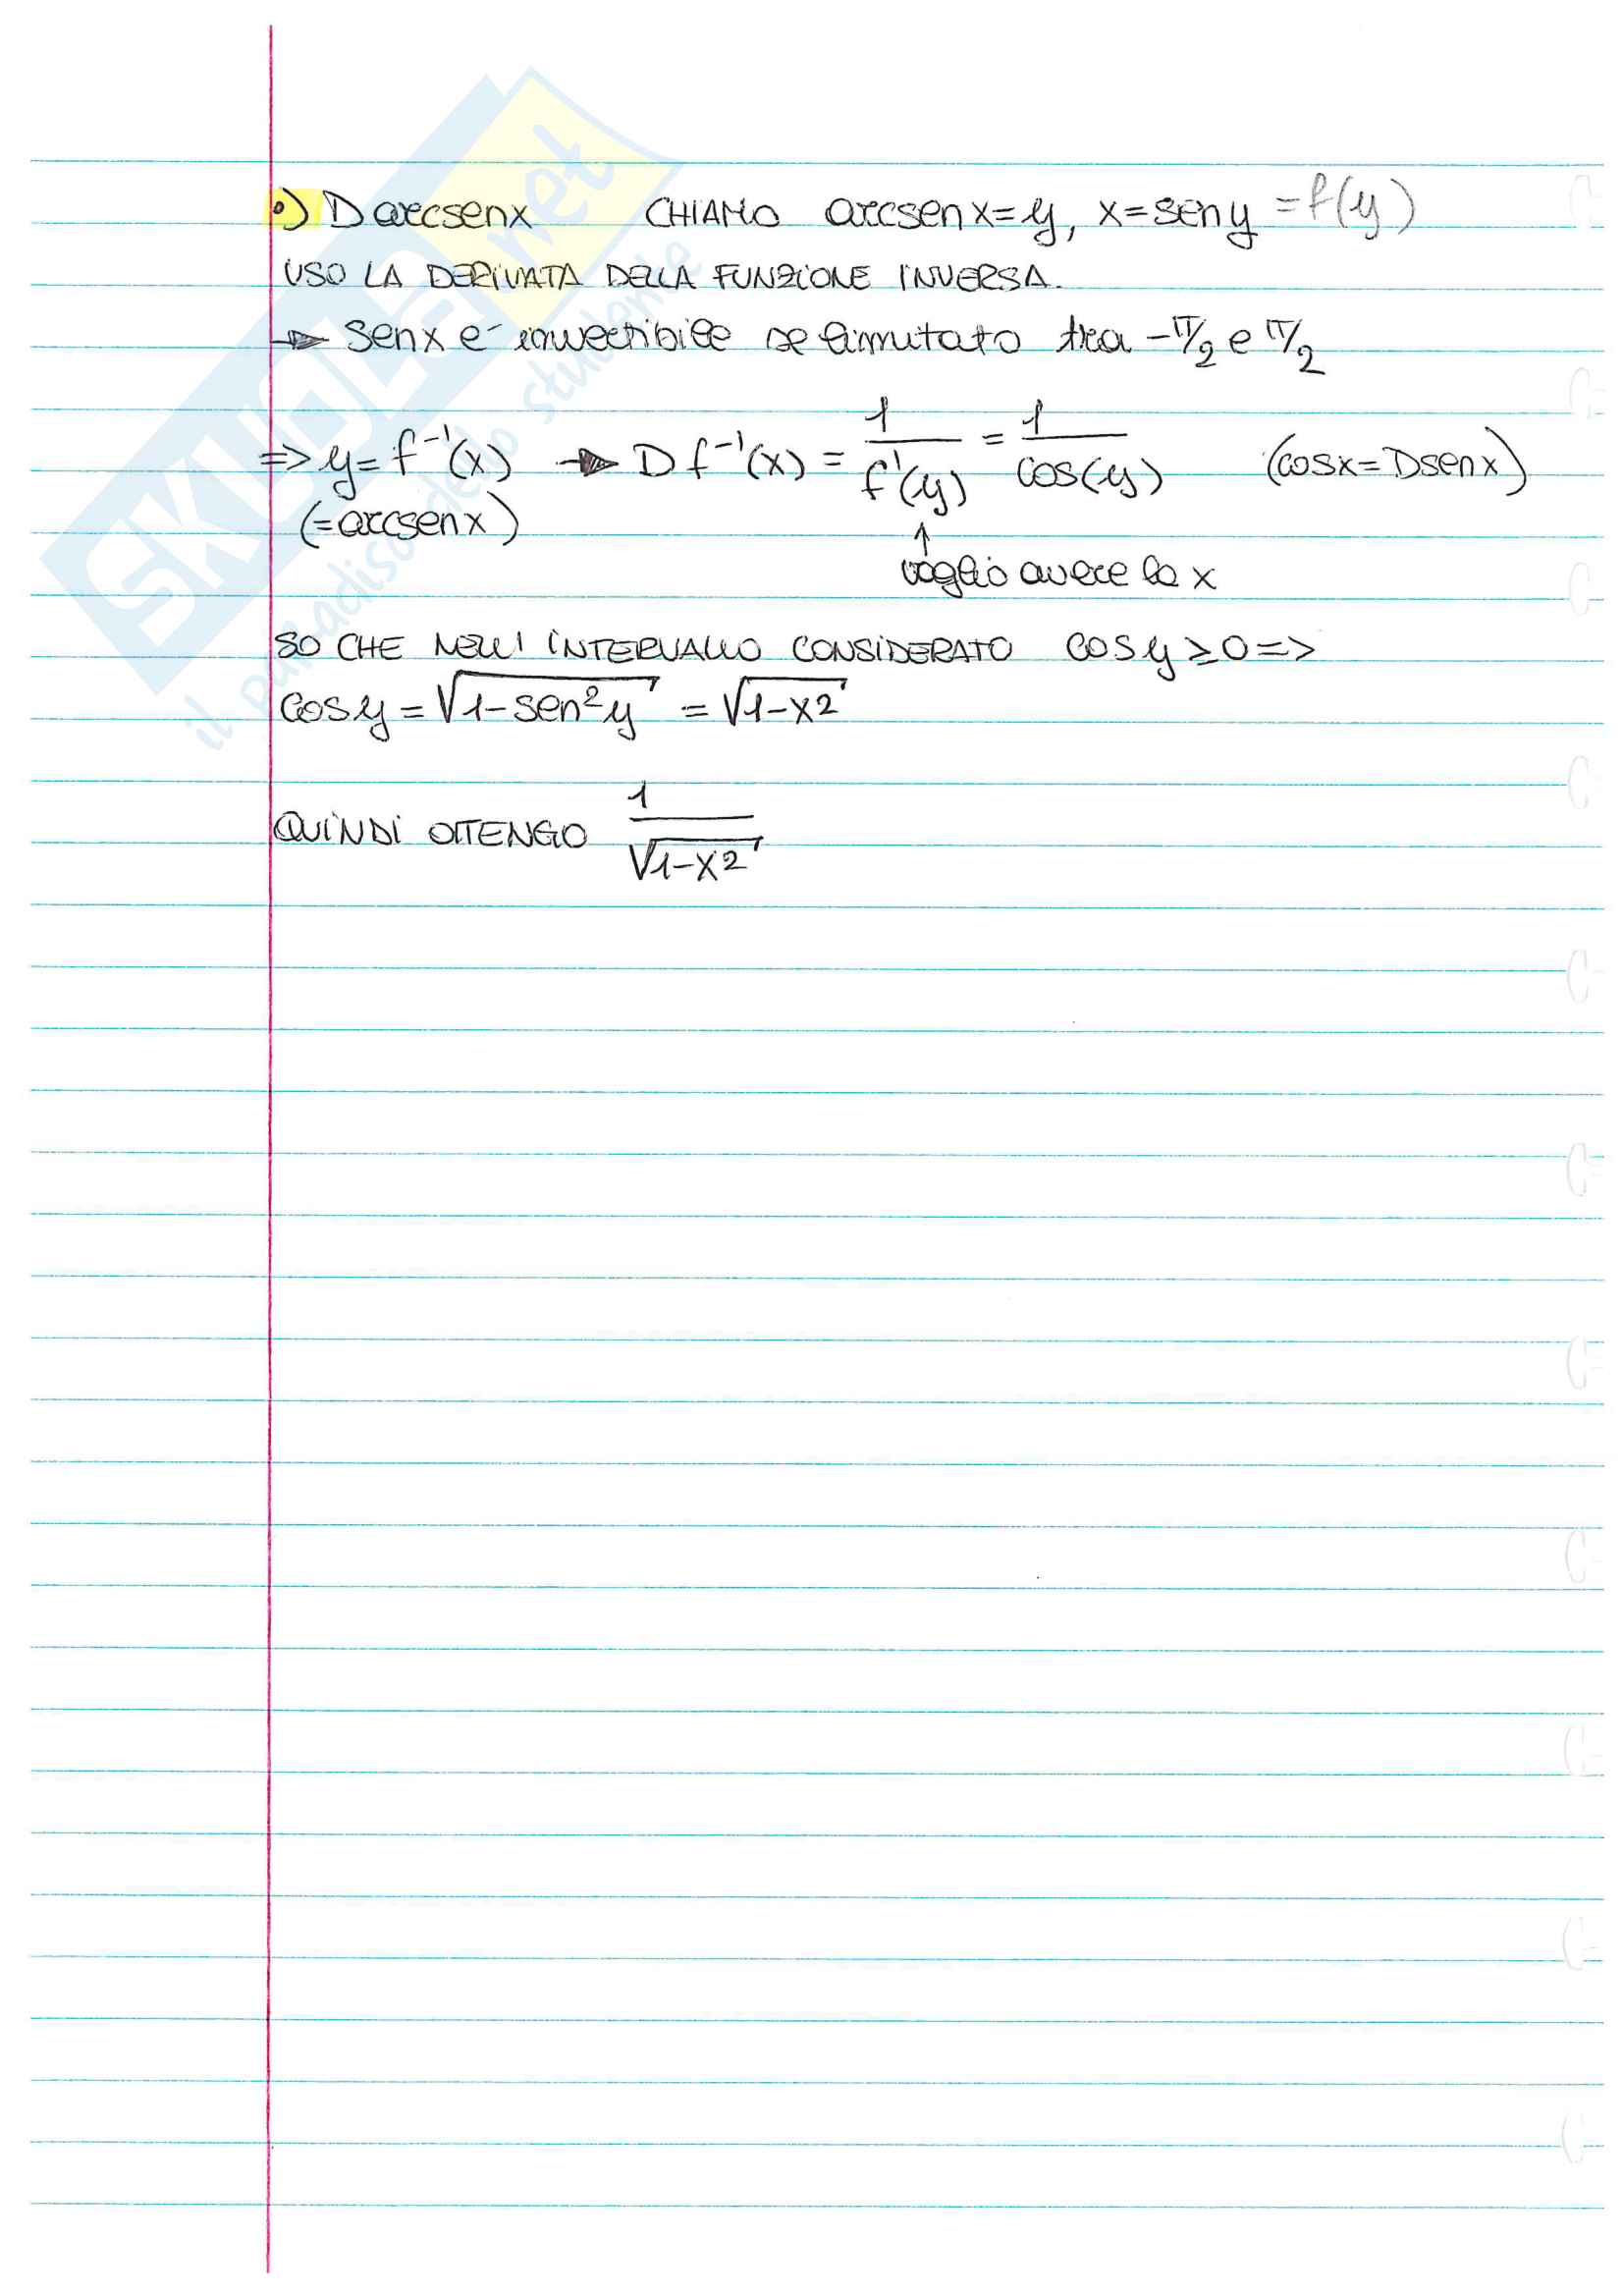 •) D arcsenx   CHIAMO arcsenx=y, x=seny =f(y)
USO LA DERIVATA DELLA FUNZIONE INVERSA.
→ senx e' invertibile se limitato tra -π/2 e π/2
=> y= f⁻¹(x) → D f⁻¹(x) = 1/f'(y) = 1/cos(y)   (cosx=Dsenx)
(=arcsenx)
↑
voglio avere la x
SO CHE NELL'INTERVALLO CONSIDERATO cosy ≥0 =>
cosy = √1-sen²y = √1-x2
QUINDI OTTENGO 1/√1-x2
SKUOLA.net
il paradiso dello studente